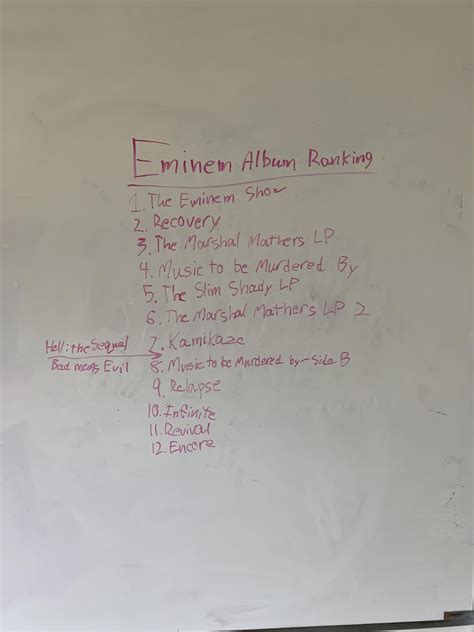 Eminem Album Ranking
1. The Eminem Show
2. Recovery
3. The Marshal Mathers LP
4. Music to be Murdered By
5. The Slim Shady LP
6. The Marshal Mathers LP 2
7. Kamikaze
Hell: the Sequel
Bad meets Evil
8. Music to be Murdered by - Side B
9. Relapse
10. Infinite
11. Revival
12. Encore